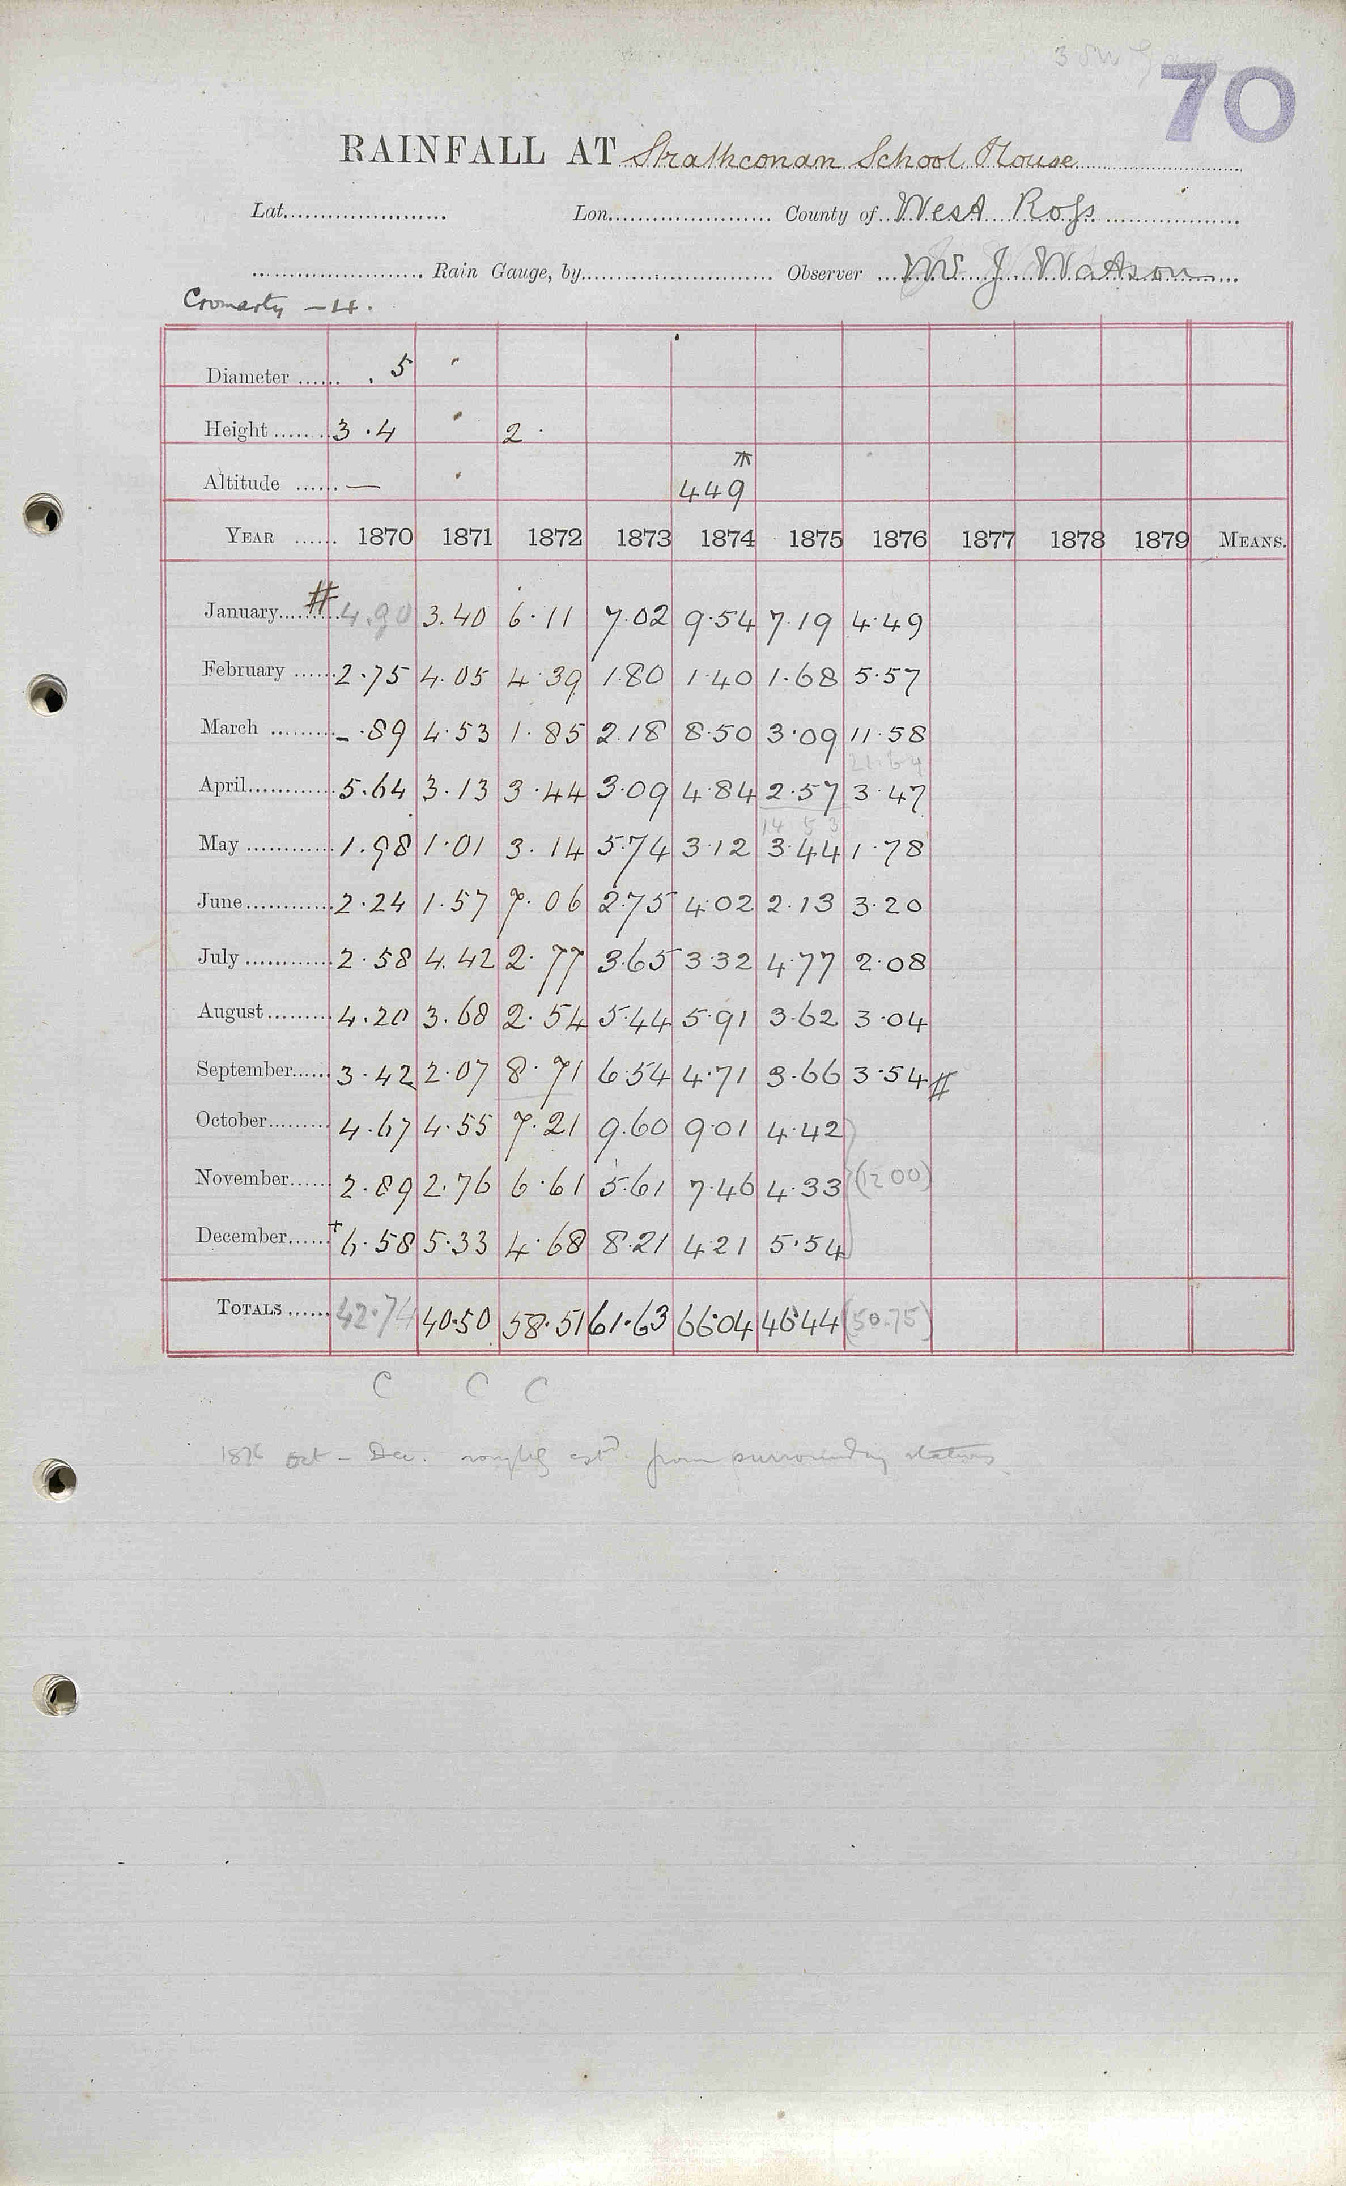 70
RAINFALL AT Strathconan School House
Lat. Lon. County of West Ross
Rain Gauge, by Observer Mr J Watson
Cromarty - 4.
Diameter . 5
Height 3.4 2
Altitude — 449
YEAR 1870 1871 1872 1873 1874 1875 1876 1877 1878 1879 MEANS.
January # 4.90 3.40 6.11 7.02 9.54 7.19 4.49
February 2.75 4.05 4.39 1.80 1.40 1.68 5.57
March -.89 4.53 1.85 2.18 8.50 3.09 11.58
21.64
April 5.64 3.13 3.44 3.09 4.84 2.57 3.47
14 53
May 1.98 1.01 3.14 5.74 3.12 3.44 1.78
June 2.24 1.57 7.06 2.75 4.02 2.13 3.20
July 2.58 4.42 2.77 3.65 3.32 4.77 2.08
August 4.20 3.68 2.54 5.44 5.91 3.62 3.04
September 3.42 2.07 8.71 6.54 4.71 3.66 3.54 #
October 4.67 4.55 7.21 9.60 9.01 4.42
November 2.89 2.76 6.61 5.61 7.46 4.33 (12 00)
December + 6.58 5.33 4.68 8.21 4.21 5.54
TOTALS 42.74 40.50 58.51 61.63 66.04 46.44 (50.75)
C C C
1876 Oct - Dec. roughly estd from surrounding stations